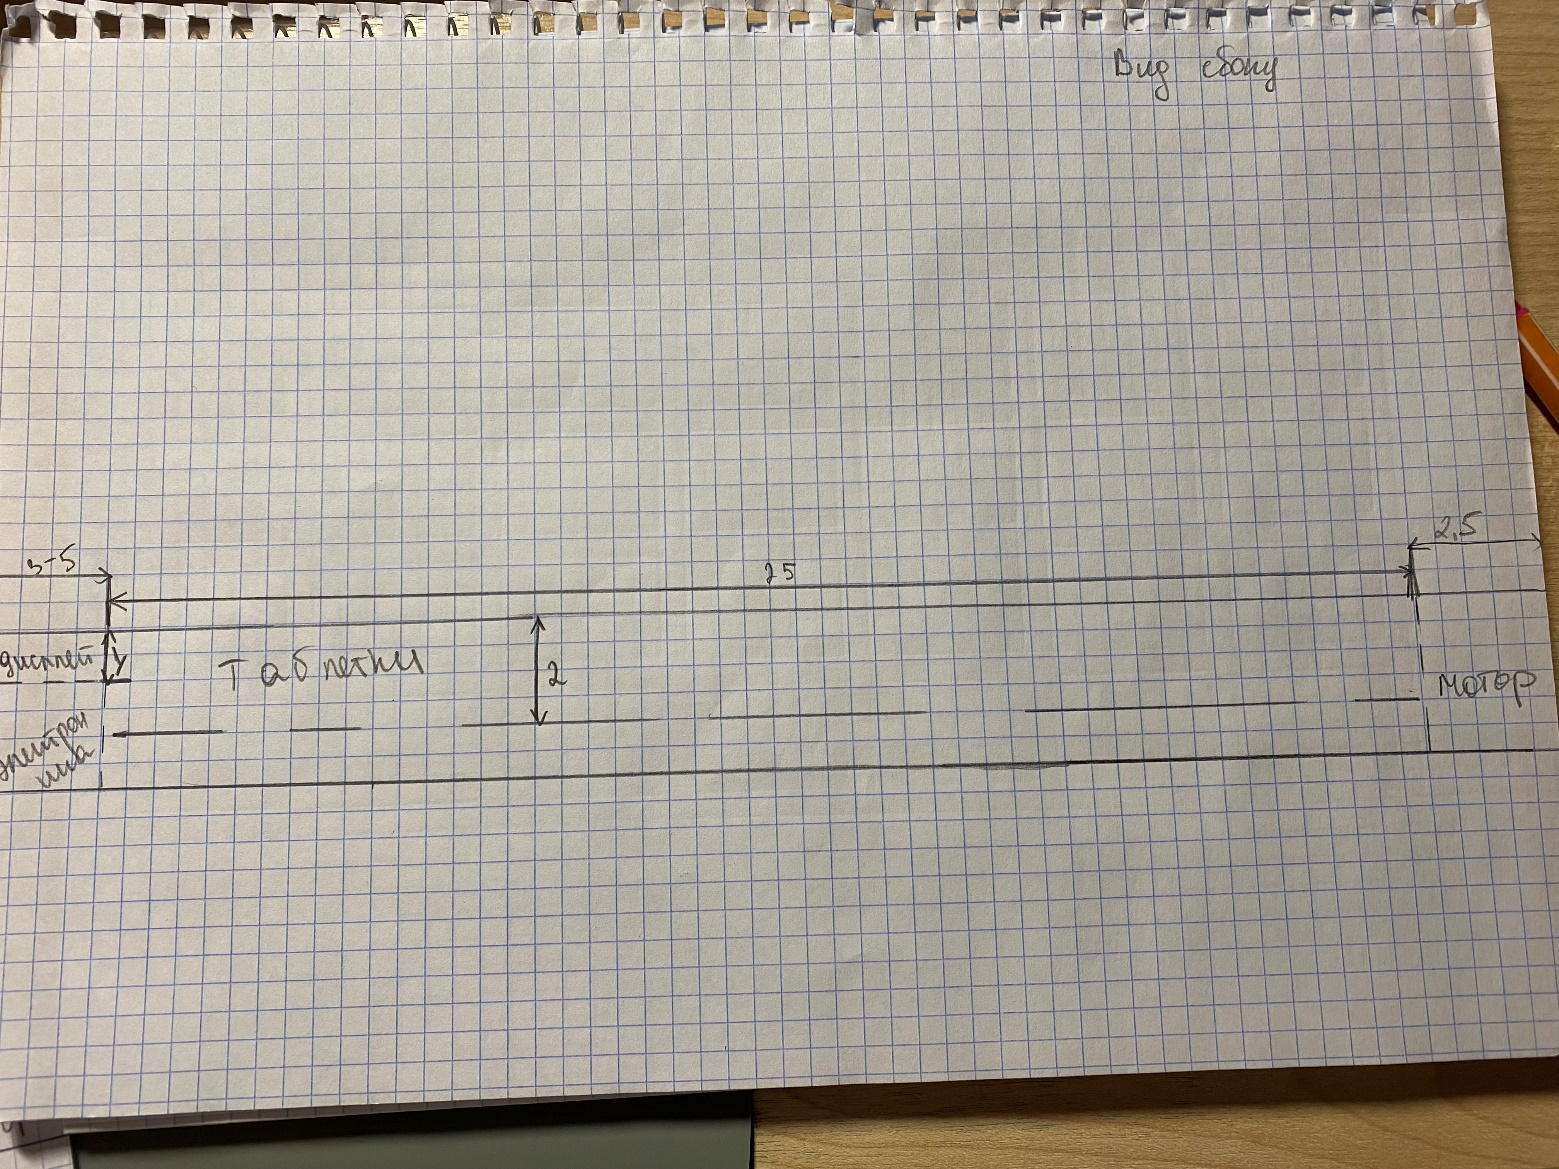 Вид сбоку
3-5
25
2,5
дисплей
Таблетки
2
мотор
электрон
ика